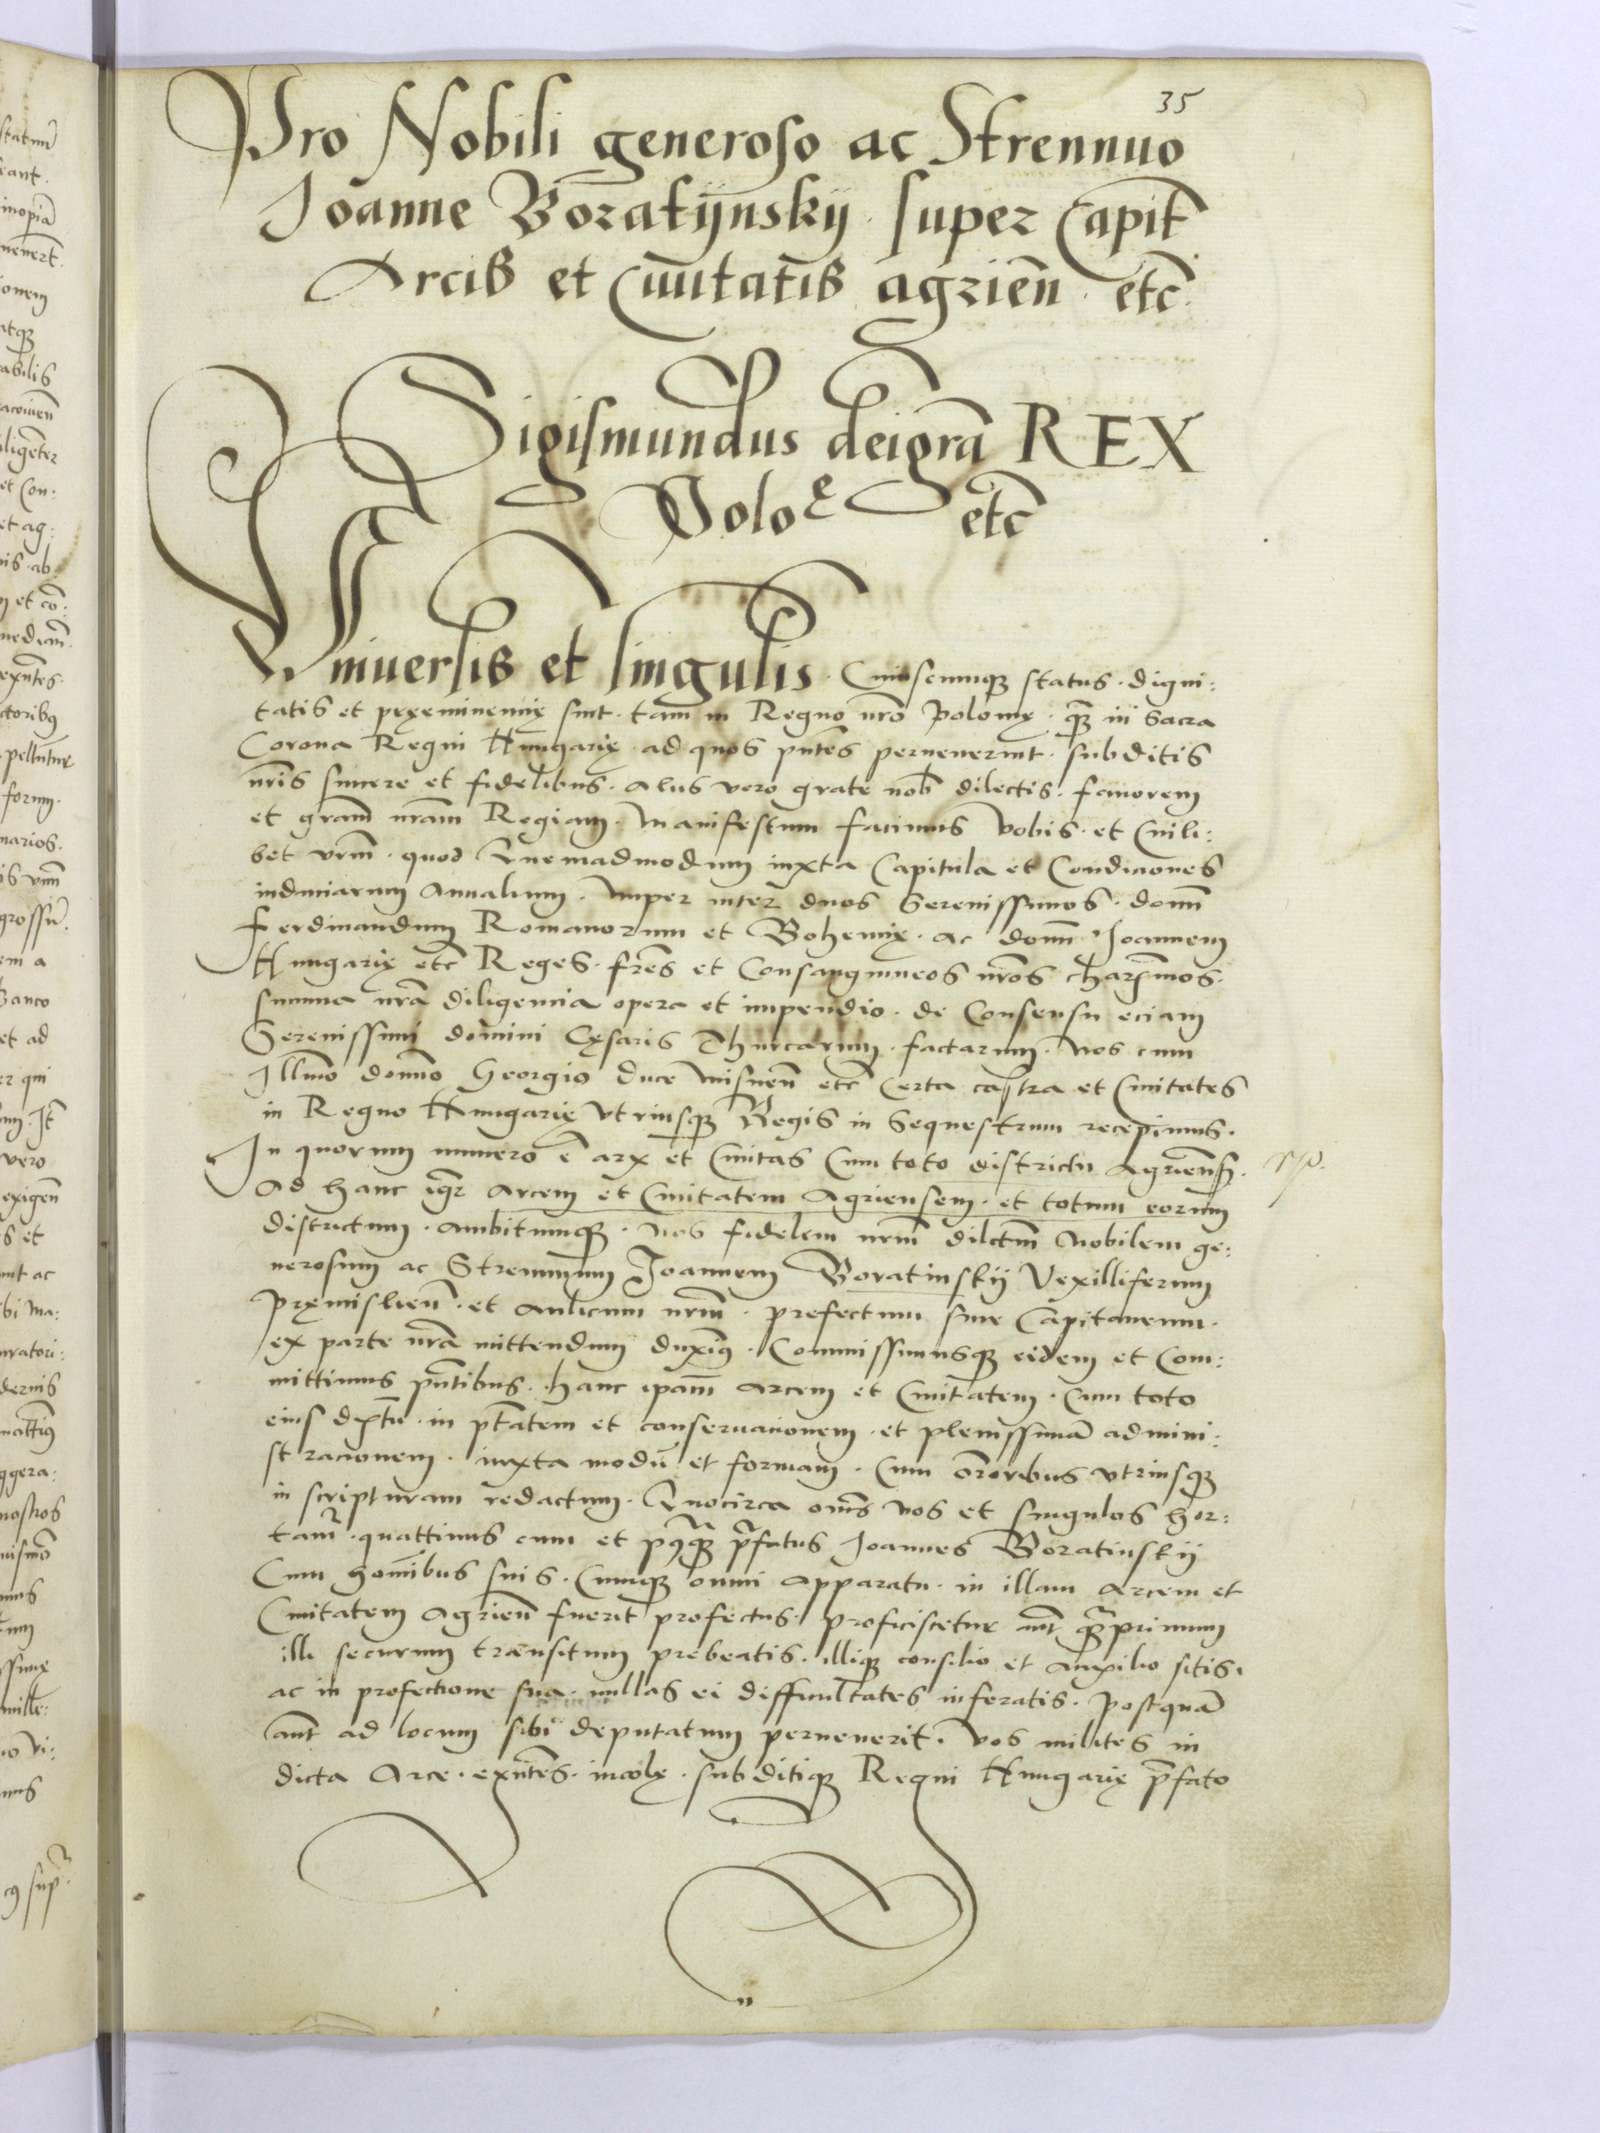 35
Pro Nobili generoso ac Strennuo
Joanne Boratÿnskÿ super Capit̄
Arcis et Ciuitatis agrien̄ etc̄
Sigismundus dei gr̄a REX
Polo etc̄
Uniuersis et singulis. Cuiuscunq; status. digni:
tatis et pręeminencię sint. tam in Regno nr̄o Polonię. q̄m in Sacra
Corona Regni Hungarię. ad quos pn̄tes peruenerint. subditis
nr̄is sincere et fidelibus. alijs vero grate nob̄ dilectis. fauorem
et gr̄am nr̄am Regiam. Manifestum facimus vobis. et Cuili:
bet vrm̄. quod Quemadmodum iuxta Capitula et Condiciones
induciarum Annalium. Nuper inter duos Serenissimos. domn̄
Ferdinandum Romanorum et Bohemię. ac domn̄ Joannem
Hungarię etc̄ Reges. fr̄es et Consanguineos nr̄os charissimos.
summa nr̄a diligencia opera et impendio. de Consensu eciam
Serenissimi domini Cęsaris Thurcarum. factarum. Nos cum
Illmō domnō Georgio duce Misnen̄ etc̄ Certa castra et Ciuitates
in Regno Hungarię Vtriusq; Regis in Sequestrum recepimus.
In quorum numero ē arx et Ciuitas Cum toto districtu Agriens̄.
Ad hanc igr̄ Arcem et Ciuitatem Agriensem. et totum eorum
districtum. ambitumq;. Nos fidelem nrm̄ dilctm̄ Nobilem ge:
nerosum ac Strennuum Joannem Boratinskÿ Vexilliferum
Pręmislien̄. et aulicum nrm̄. prefectum siue Capitaneum.
ex parte nr̄a mittendum duxim9. Commissimusq; eidem et Com:
mittimus pn̄tibus. hanc ipam̄ Arcem et Ciuitatem. Cum toto
eius d̄xtu. in pt̄atem et conseruacionem. et plenissimā admini:
stracionem. iuxta modū et formam. Cum or̄oribus vtriusq;
in scripturam redactum. Quocirca om̄s vos et singulos hor:
tamr̄. quattinus cum et pręfatus Joannes Boratinskÿ
Cum hom̄ibus suis. Cumq; omni apparatu. in illam Arcem et
Ciuitatem Agrien̄ fuerit profectus. proficiscetur aut̄ q̄mprimum
illi securum transitum prebeatis. illiq; consilio et Auxilio sitis.
ac in profectione sua. nullas ei difficultates inferatis. Postquā
aut̄ ad locum sibi deputatum peruenerit. Vos milites in
dicta Arce. exn̄tes. incolę. subditiq; Regni Hungarię pr̄fato